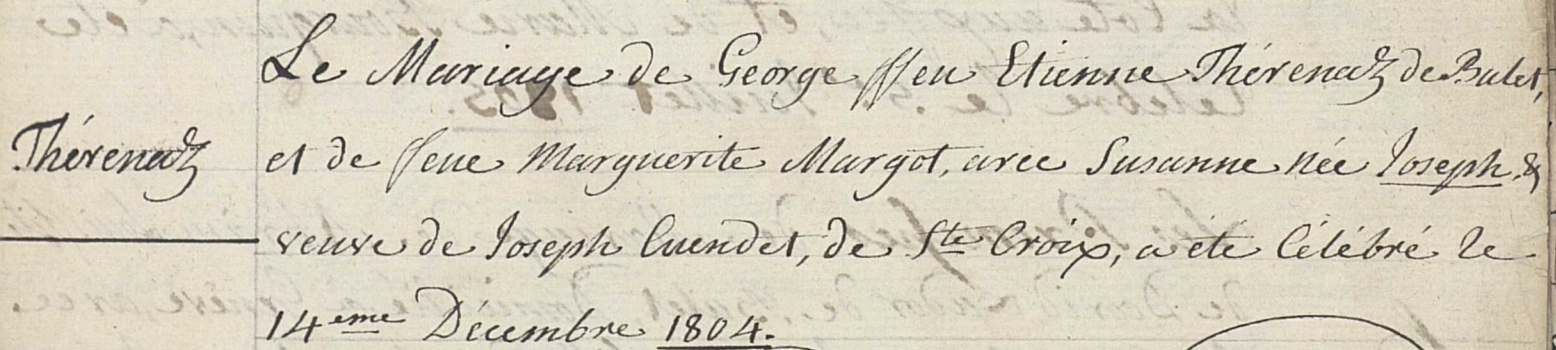 Le Mariage de George ffeu Etienne Thérenaz de Bulet,
Thérenaz
et de feue Marguerite Margot, avec Susanne née Joseph &
veuve de Joseph Cuendet, de Ste Croix, a été Célébré le
14eme Décembre 1804.